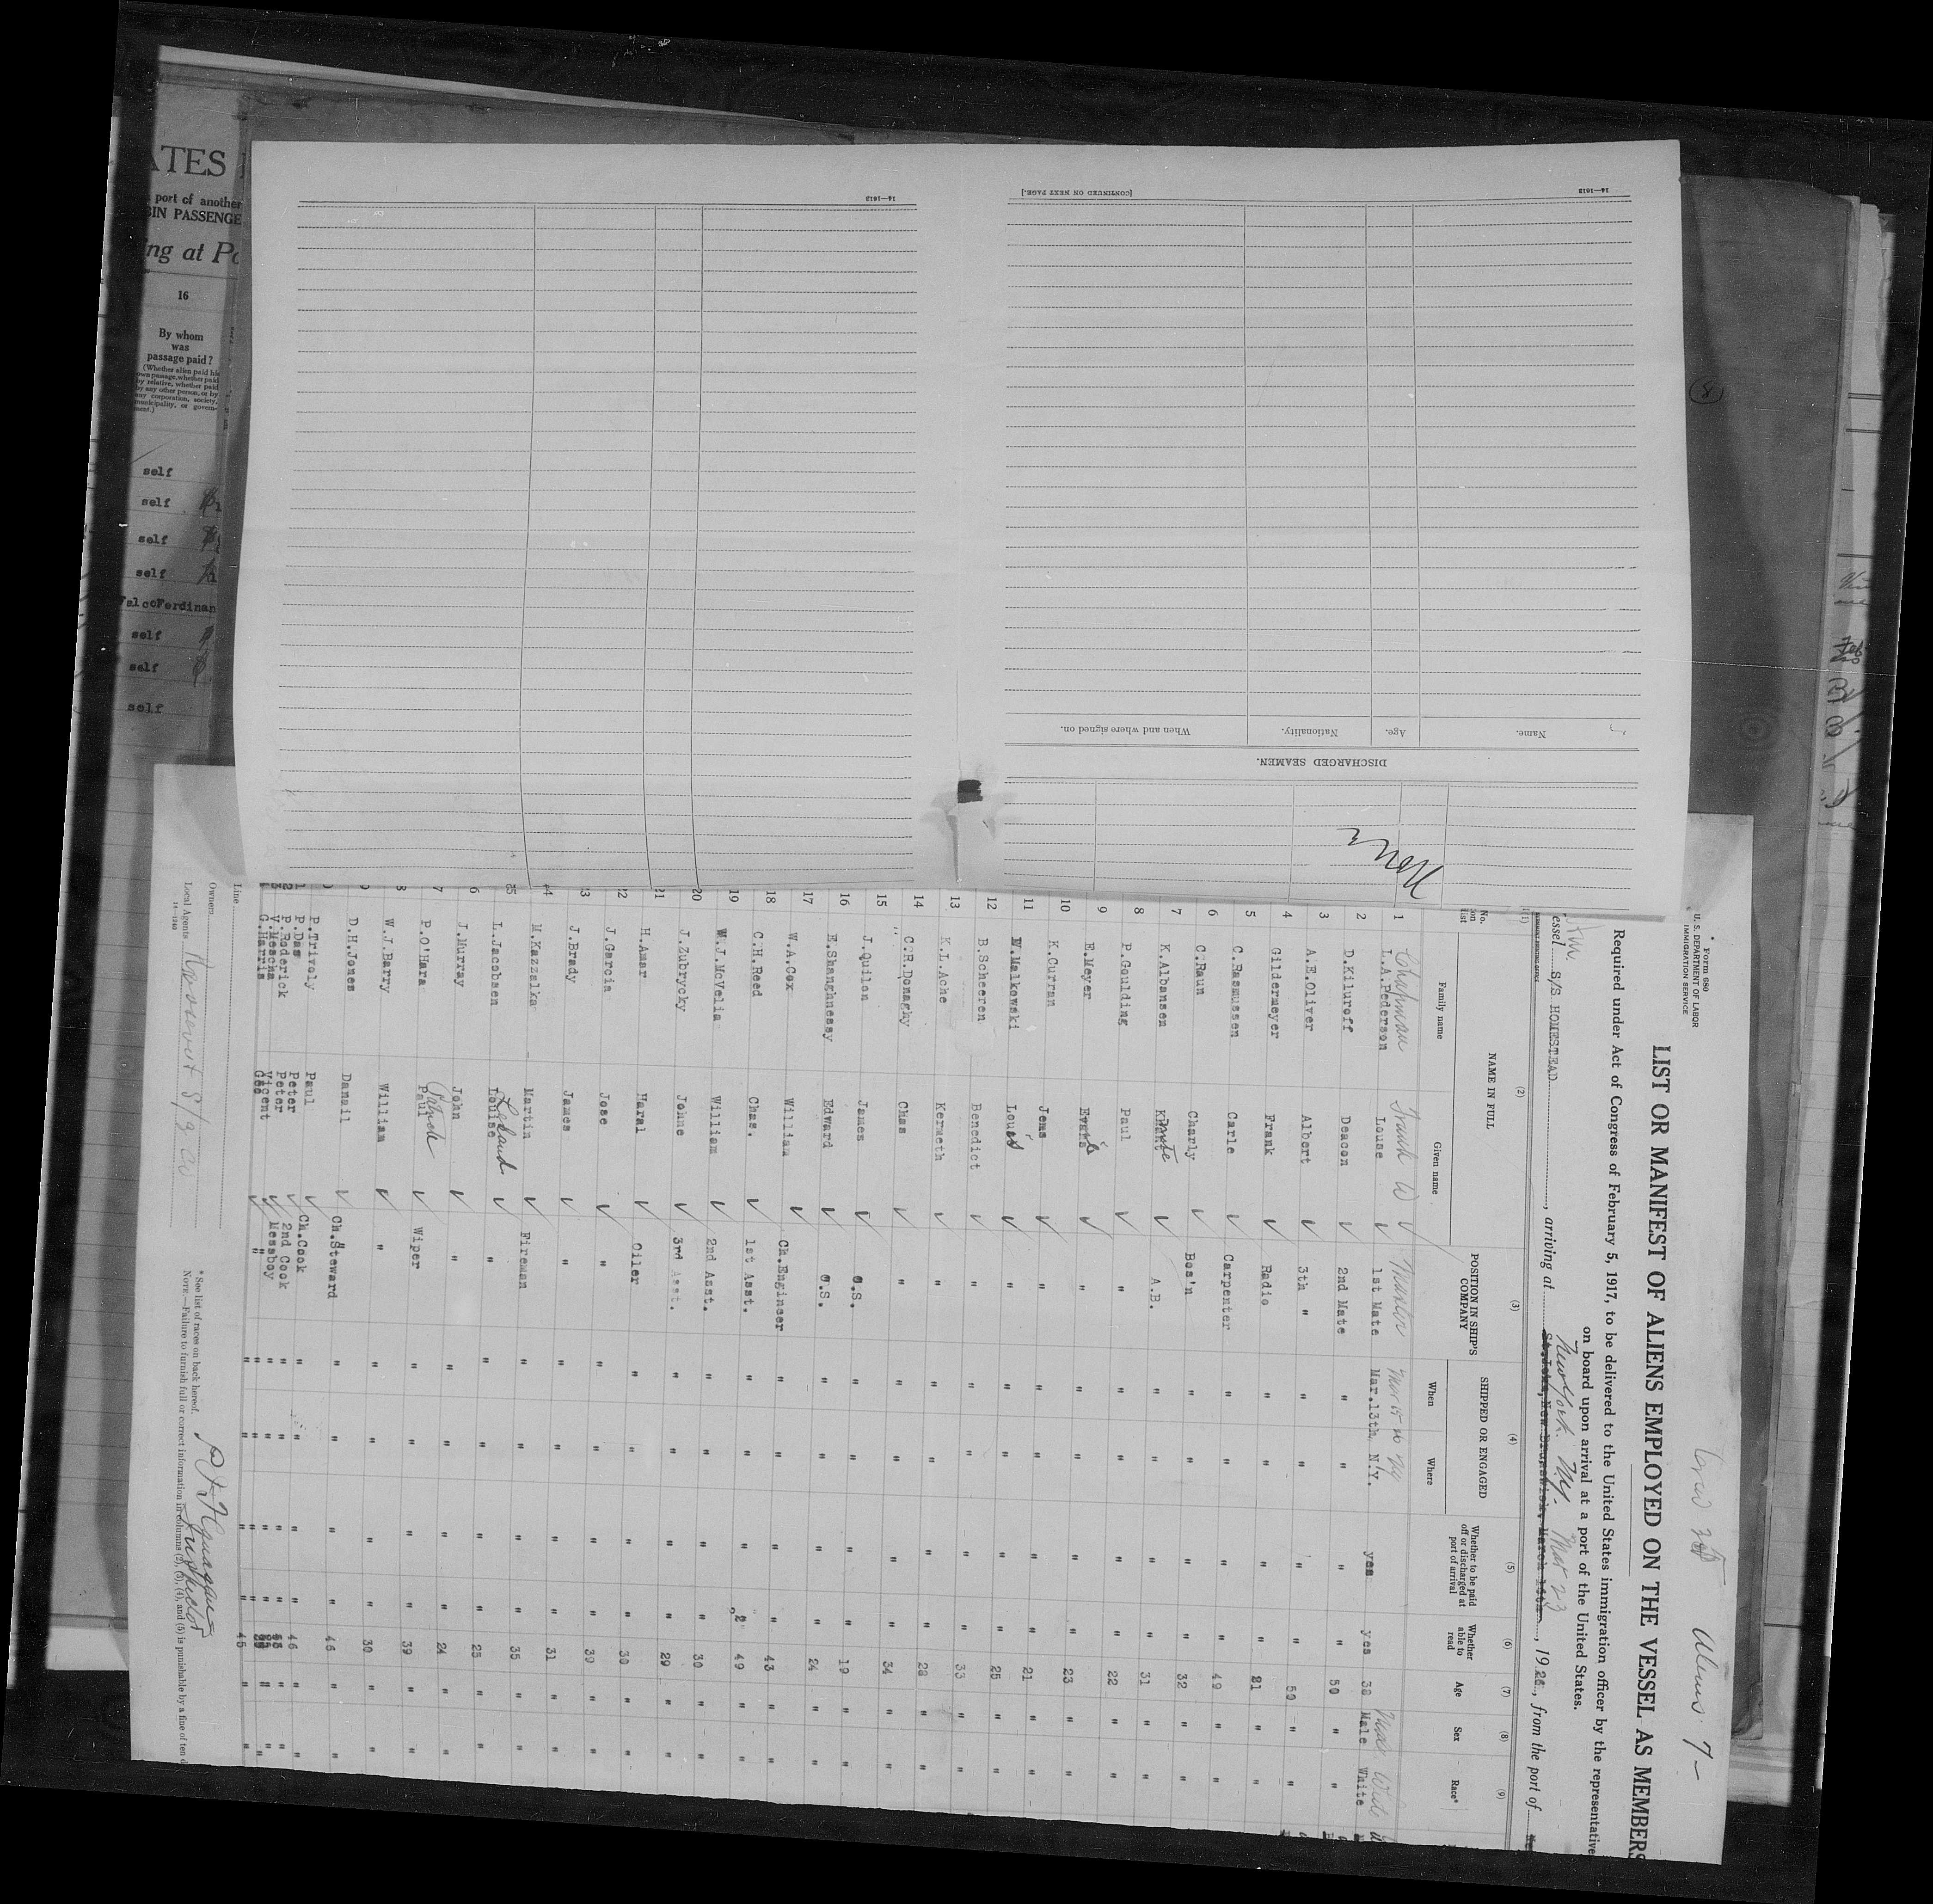 ATES
port of another
BIN PASSENGE
ing at Po
16
By whom
was
passage paid?
(Whether alien paid his
own passage, whether paid
by relative, whether paid
by any other person, or by
any corporation, society,
municipality, or govern-
ment.)
self
self
self
self
FalcoFerdinan
self
self
self
14—1613
[CONTINUED ON NEXT PAGE.]
14—1613
DISCHARGED SEAMEN.
Name. Age. Nationality. When and where signed on.
None
8
Form 680
U. S. DEPARTMENT OF LABOR
IMMIGRATION SERVICE
Crew 35 Aliens 7—
LIST OR MANIFEST OF ALIENS EMPLOYED ON THE VESSEL AS MEMBERS
Required under Act of Congress of February 5, 1917, to be delivered to the United States immigration officer by the representative
on board upon arrival at a port of the United States.
New York NY. Mar 23
essel S/S HOMESTEAD , arriving at St.John,New Brunswick, March 16th , 1926, from the port of
(1) (2) (3) (4) (5) (6) (7) (8) (9)
No. on list NAME IN FULL POSITION IN SHIP'S COMPANY SHIPPED OR ENGAGED Whether to be paid off or discharged at port of arrival Whether able to read Age Sex Race*
Family name Given name When Where
Chapman Frank W Master Mar 15 26 NY Male White
1 L.A.Pederson Louse 1st Mate Mar.13th N.Y. yes yes 38 Male White
2 D.Kiluroff Deacon 2nd Mate " " " " 50 " "
3 A.E.Oliver Albert 3th " " " " " 50 " "
4 Gildermeyer Frank Radio " " " " 21 " "
5 C.Rasmussen Carle Carpenter " " " " 49 " "
6 C.Raun Charly Bos'n " " " " 32 " "
7 K.Albansen Knute A.B. " " " " 31 " "
8 P.Goulding Paul " " " " " 22 " "
9 E.Meyer " " " " " 23 " "
10 K.Curran Jems " " " " " 21 " "
11 W.Malkowski Louis " " " " " 25 " "
12 B.Scheeren Benedict " " " " " 33 " "
13 K.L.Ache Kermeth " " " " " 28 " "
14 C.R.Donaghy Chas " " " " " 34 " "
15 J.Quilon James O.S. " " " " 19 " "
16 E.Shanghnessy Edward O.S. " " " " 24 " "
17 W.A.Cox William Ch.Engineer " " " " 43 " "
18 C.H.Reed Chas. 1st Asst. " " " " 49
19 W.J.McVelia William 2nd Asst. " " " " 30
20 J.Zubrycky Johne 3rd Asst. " " " " 29 " "
21 H.Amar Haral Oiler " " " " 30 " "
22 J.Garcia Jose " " " " " 39 " "
23 J.Brady James " " " " " 31 " "
24 M.Kazzalka Martin Fireman " " " " 35 " "
25 L.Jacobsen Louise Leland " " " " " 25 " "
6 J.Murray John " " " " " 24 " "
7 P.O'Hara Paul Patrick Wiper " " " " 39 " "
8 W.J.Barry William " " " " " 30 " "
9 D.H.Jones Danail Ch.Steward " " " " 46 " "
P.Trivoly Paul Ch.Cook " " " " 46 " "
P.Das Peter 2nd Cook " " " "
P.Roderick Peter Messboy " " " "
V.Moscha Vicent " " " " "
G.Harris Geo " " " " " 45 " "
Line
Owners
Local Agents Roosevelt S/S Co
14—1240
* See list of races on back hereof.
NOTE.—Failure to furnish full or correct information in columns (2), (3), (4), and (5) is punishable by a fine of ten d
Inspector